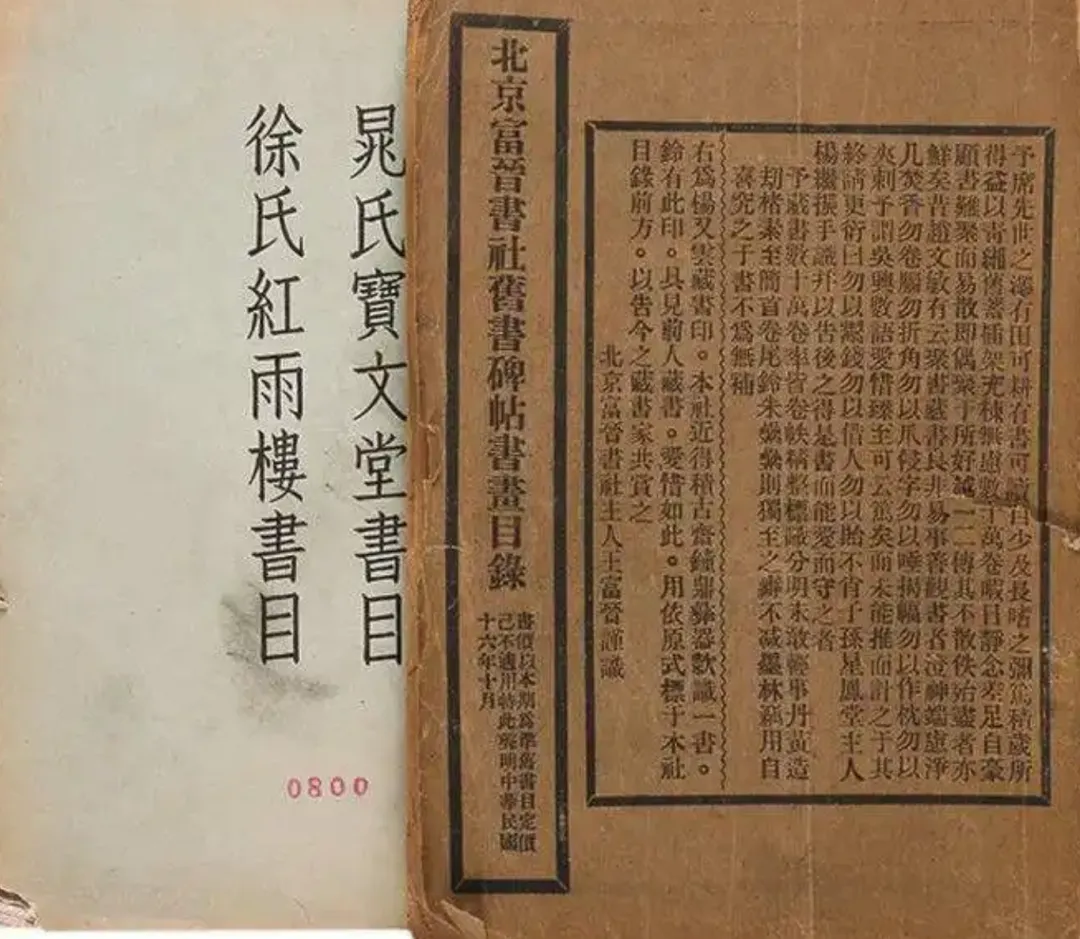 予席先世之澤有田可耕有書可讀自少及長嗜之彌篤積歲所
得益以青緗舊蓄插架充棟無慮數十萬卷暇日靜念差足自豪
顧書難聚而易散即偶聚于所好越一二傳其不散佚殆盡者亦
鮮矣昔趙文敏有云聚書藏書良非易事善觀書者澄神端慮淨
几焚香勿卷腦勿折角勿以爪侵字勿以唾揭幅勿以作枕勿以
夾刺予謂吳興數語愛惜臻至可云篤矣而未能推而計之于其
終請更衍曰勿以鬻錢勿以借人勿以貽不肖子孫星鳳堂主人
楊繼振手識幷以告後之得是書而能愛而守之者
予藏書數十萬卷率皆卷帙稱整標識分明未敢輕事丹黃造
劫楮素至簡首卷尾鈐朱纍纍則獨至之癖不減墨林竊用自
喜究之于書不爲無補
右爲楊又雲藏書印。本社近得積古齋鐘鼎彝器款識一書。
鈐有此印。具見前人藏書。愛惜如此。用依原式標于本社
目錄前方。以告今之藏書家共賞之
北京富晉書社主人王富晉謹識
北京富晉書社舊書碑帖書畫目錄
書價以本期爲準舊書目定價
已不適用特此聲明中華民國
十六年十月
晁氏寶文堂書目
徐氏紅雨樓書目
0800